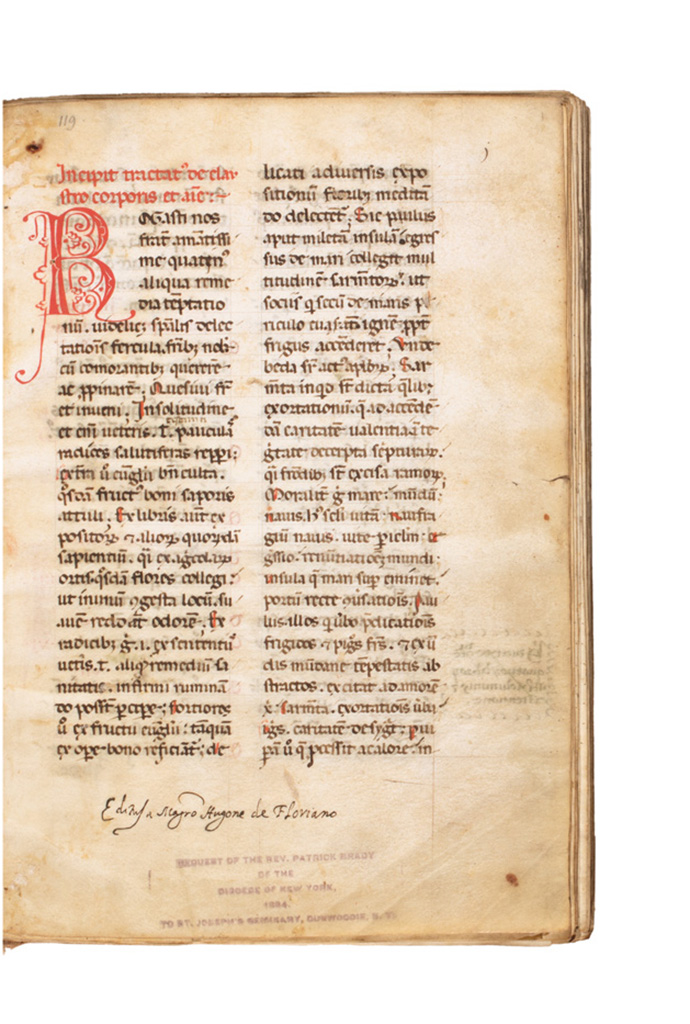 119
Incipit tractat' de clau
stro corporis et aīe
ROGasti nos
frat̄ amātissi
me quatenꝰ
aliqua reme
dia tēptatio
nū. uidelicꝫ spālis delec
tatiōis fercula. frībꝫ nob
cū comorantibꝫ querere
ac ꝓpinare. Quesiui fr̄
et inueni. In solitudine
et enī ueteris. t̄. paucula
radices salutiferas reppi;
ū euglii bn̄ culta.
qͦsdā fruct' boni saporis
attuli. Ex libris aut̄ ex
positoꝝ ⁊ alioꝝ quoꝛdā
sapientiū. qͥ ex agꝛcolaꝝ
ortis. qͦsdā flores collegi:
ut in unū ꝯgesta locū. su
auē reddāt odorē. Ex
radicibꝫ g̊. i. ex sententiis
uet̄is. t. aliqͣ remediū sa
nitatis. infirmi
possīt ꝑcipe; fortiores
ū ex fructu euglii: tāquā
ex ope bono reficiāt̄; de
licati a diuersis expo
sitionū floribꝫ meditā
do delectēt̄. Sic paulus
aput miletā insulā egres
sus de mari collegit mul
titudinē sarm̄toꝝ. ut
socius qͥ secū de maris ꝑ
riculo euaserāt ignē ꝓpt̄
frigus accēderet. Vnde
beda sr̄ act' aplꝝ. Sar
m̄ta inqͥd st̄ dicta qͥlibꝫ
exortationū. q̄ ad accēdē
dā caritatē
decerpta
qͥ frōdibꝫ st̄ excisa ramoꝝ.
Moralit̄ g̊ mare: mūdū:
nauis. hͥ seculi uitā: naufra
giū nauis. uite piclm:
renūtiatioē mundi:
insula q̄ mari suꝑ eminet.
portū recte ꝯuersatiōis. Pau
lus. illos qͥ uerbo pdicatiōis
frigidos ⁊ pigͦs frs̄. ⁊ ex ū
dis mūdane tēpestatis ab
stractos. excitat ad amorē
x̄. sarm̄ta. exortatiōis
igͥs. caritatē desigͣt;
ū q̄ pcessit a calore. in
Editus a Magrō Hugone de Floriano
BEQUEST OF THE REV. PATRICK BRADY
OF THE
DIOCESE OF NEW YORK,
1894.
TO ST. JOSEPH'S SEMINARY, DUNWOODIE, N. Y.